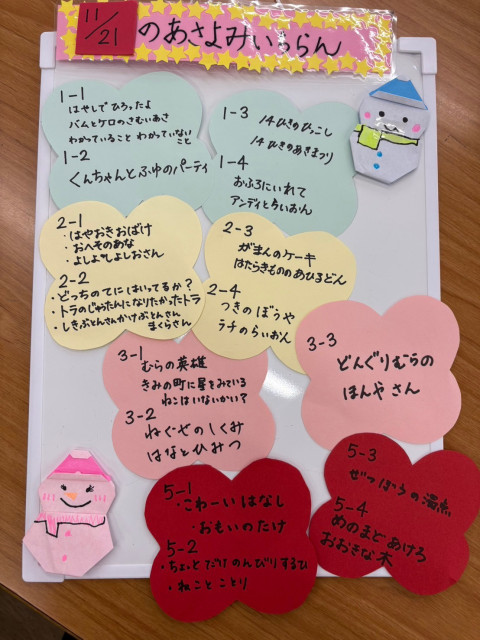 11/21 のあさよみいちらん
1-1
はやしで ひろったよ
バムとケロのさむいあさ
わかっていること わかっていない
こと
1-2
くんちゃんとふゆのパーティ
1-3 14ひきのひっこし
14ひきのあきまつり
1-4
おふろにいれて
アンディとらいおん
2-1
・はやおきおばけ
・おへそのあな
・よしよしよしおさん
2-2
・どっちのてに はいってるか?
・トラのじゅうたんになりたかったトラ
・しきぶとんさんかけぶとんさん
まくらさん
2-3
がまんのケーキ
はたらきもののあひるどん
2-4
つきのぼうや
ラチのらいおん
3-1
むらの英雄
きみの町に星をみている
ねこはいないかい?
3-2
ねぐせのしくみ
はなとひみつ
3-3
どんぐりむらの
ほんやさん
5-1
・こわーいはなし
・おもいのたけ
5-2
・ちょっとだけのんびりするひ
・ねことことり
5-3
ぜつぼうの濁点
5-4
めのまどあけろ
おおきな木